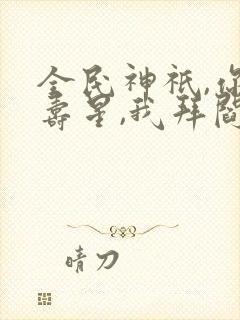 全民神祇,你
寿星,我拜阎
晴刀